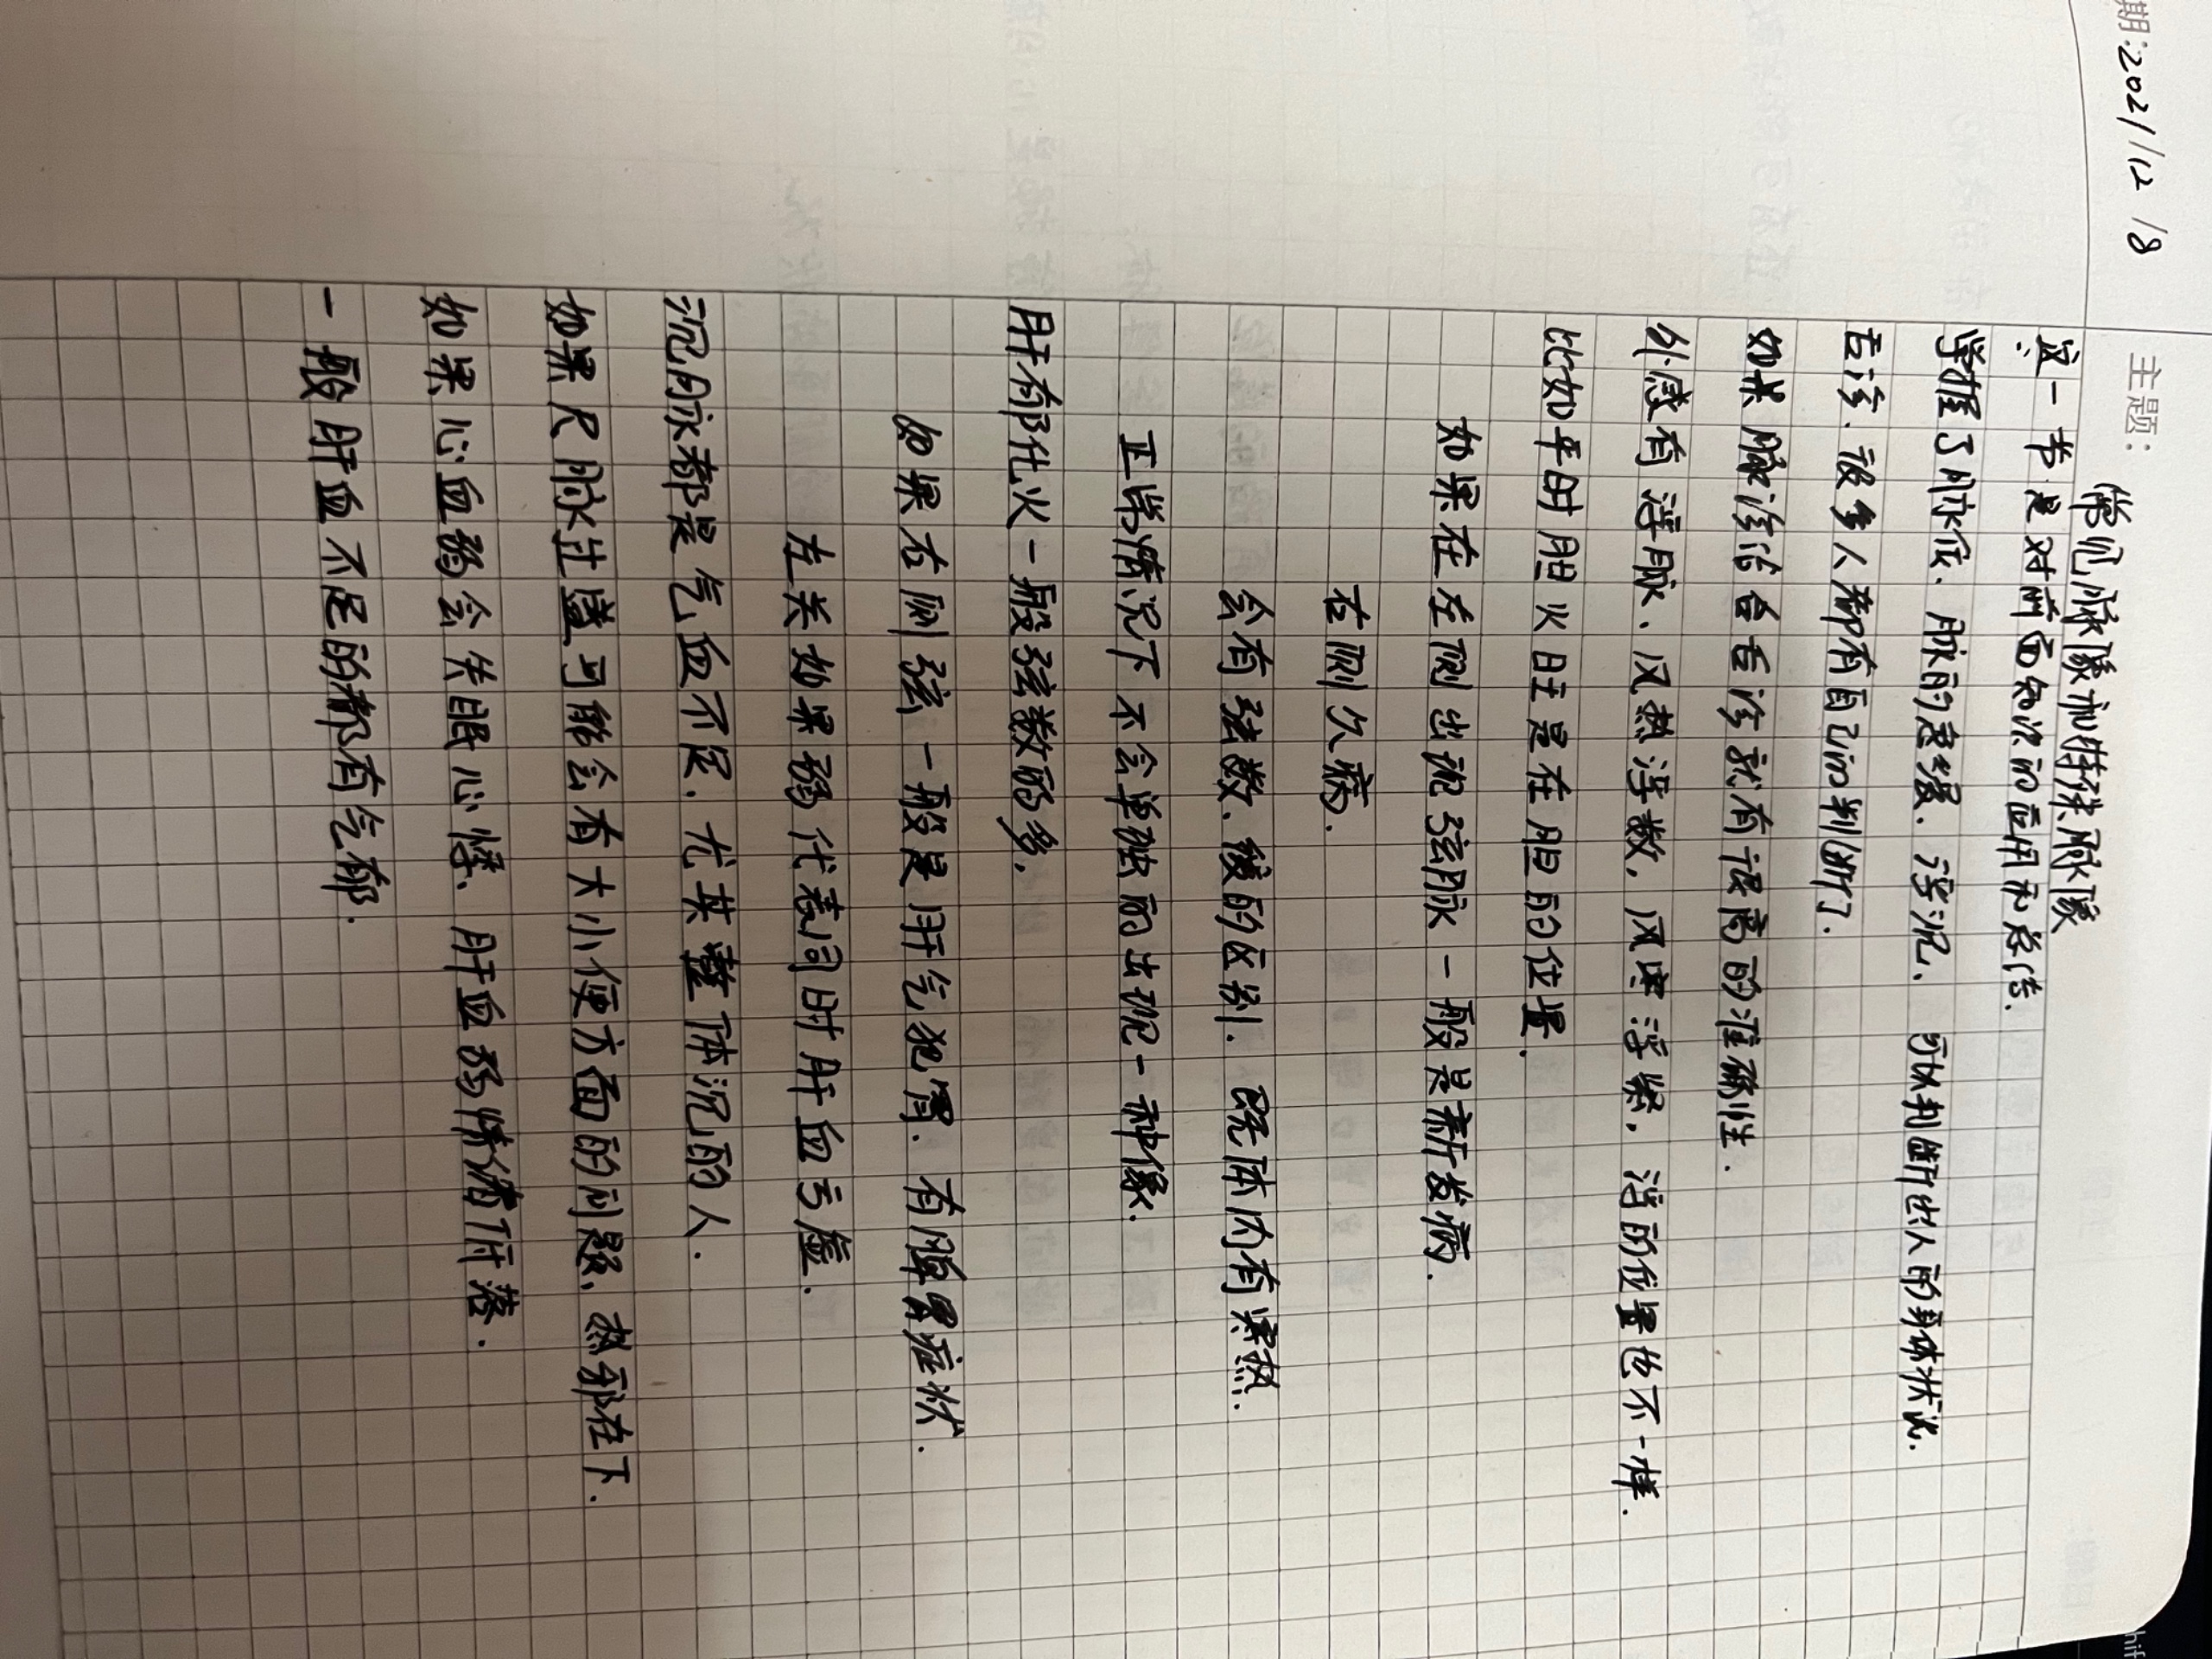 期:2021/12/8
主题: 常见脉像和特殊脉像
这一节是对前面知识的应用和总结.
掌握了脉位、脉的急缓、浮沉、可以判断出人的身体状况.
舌诊.很多人都有自己的判断了.
如果脉诊结合舌诊就有很高的准确性.
外感有浮脉、风热浮数,风寒浮紧,浮的位置也不一样.
比如平时胆火旺是在胆的位置.
如果在左侧出现弦脉一般是新发病.
右侧久病.
会有弦数、缓的区别. 既体内有寒热.
正常情况下不会单独的出现一种像.
肝有郁化火一般弦数的多.
如果右侧弦一般是肝气犯胃.有肠胃症状.
左关如果弱代表同时肝血亏虚.
沉的脉都是气血不足.尤其整体沉的人.
如果尺脉过盛可能会有大小便方面的问题、热邪在下.
如果心血弱会失眠心悸、肝血弱情绪低落.
一般肝血不足的都有气郁.